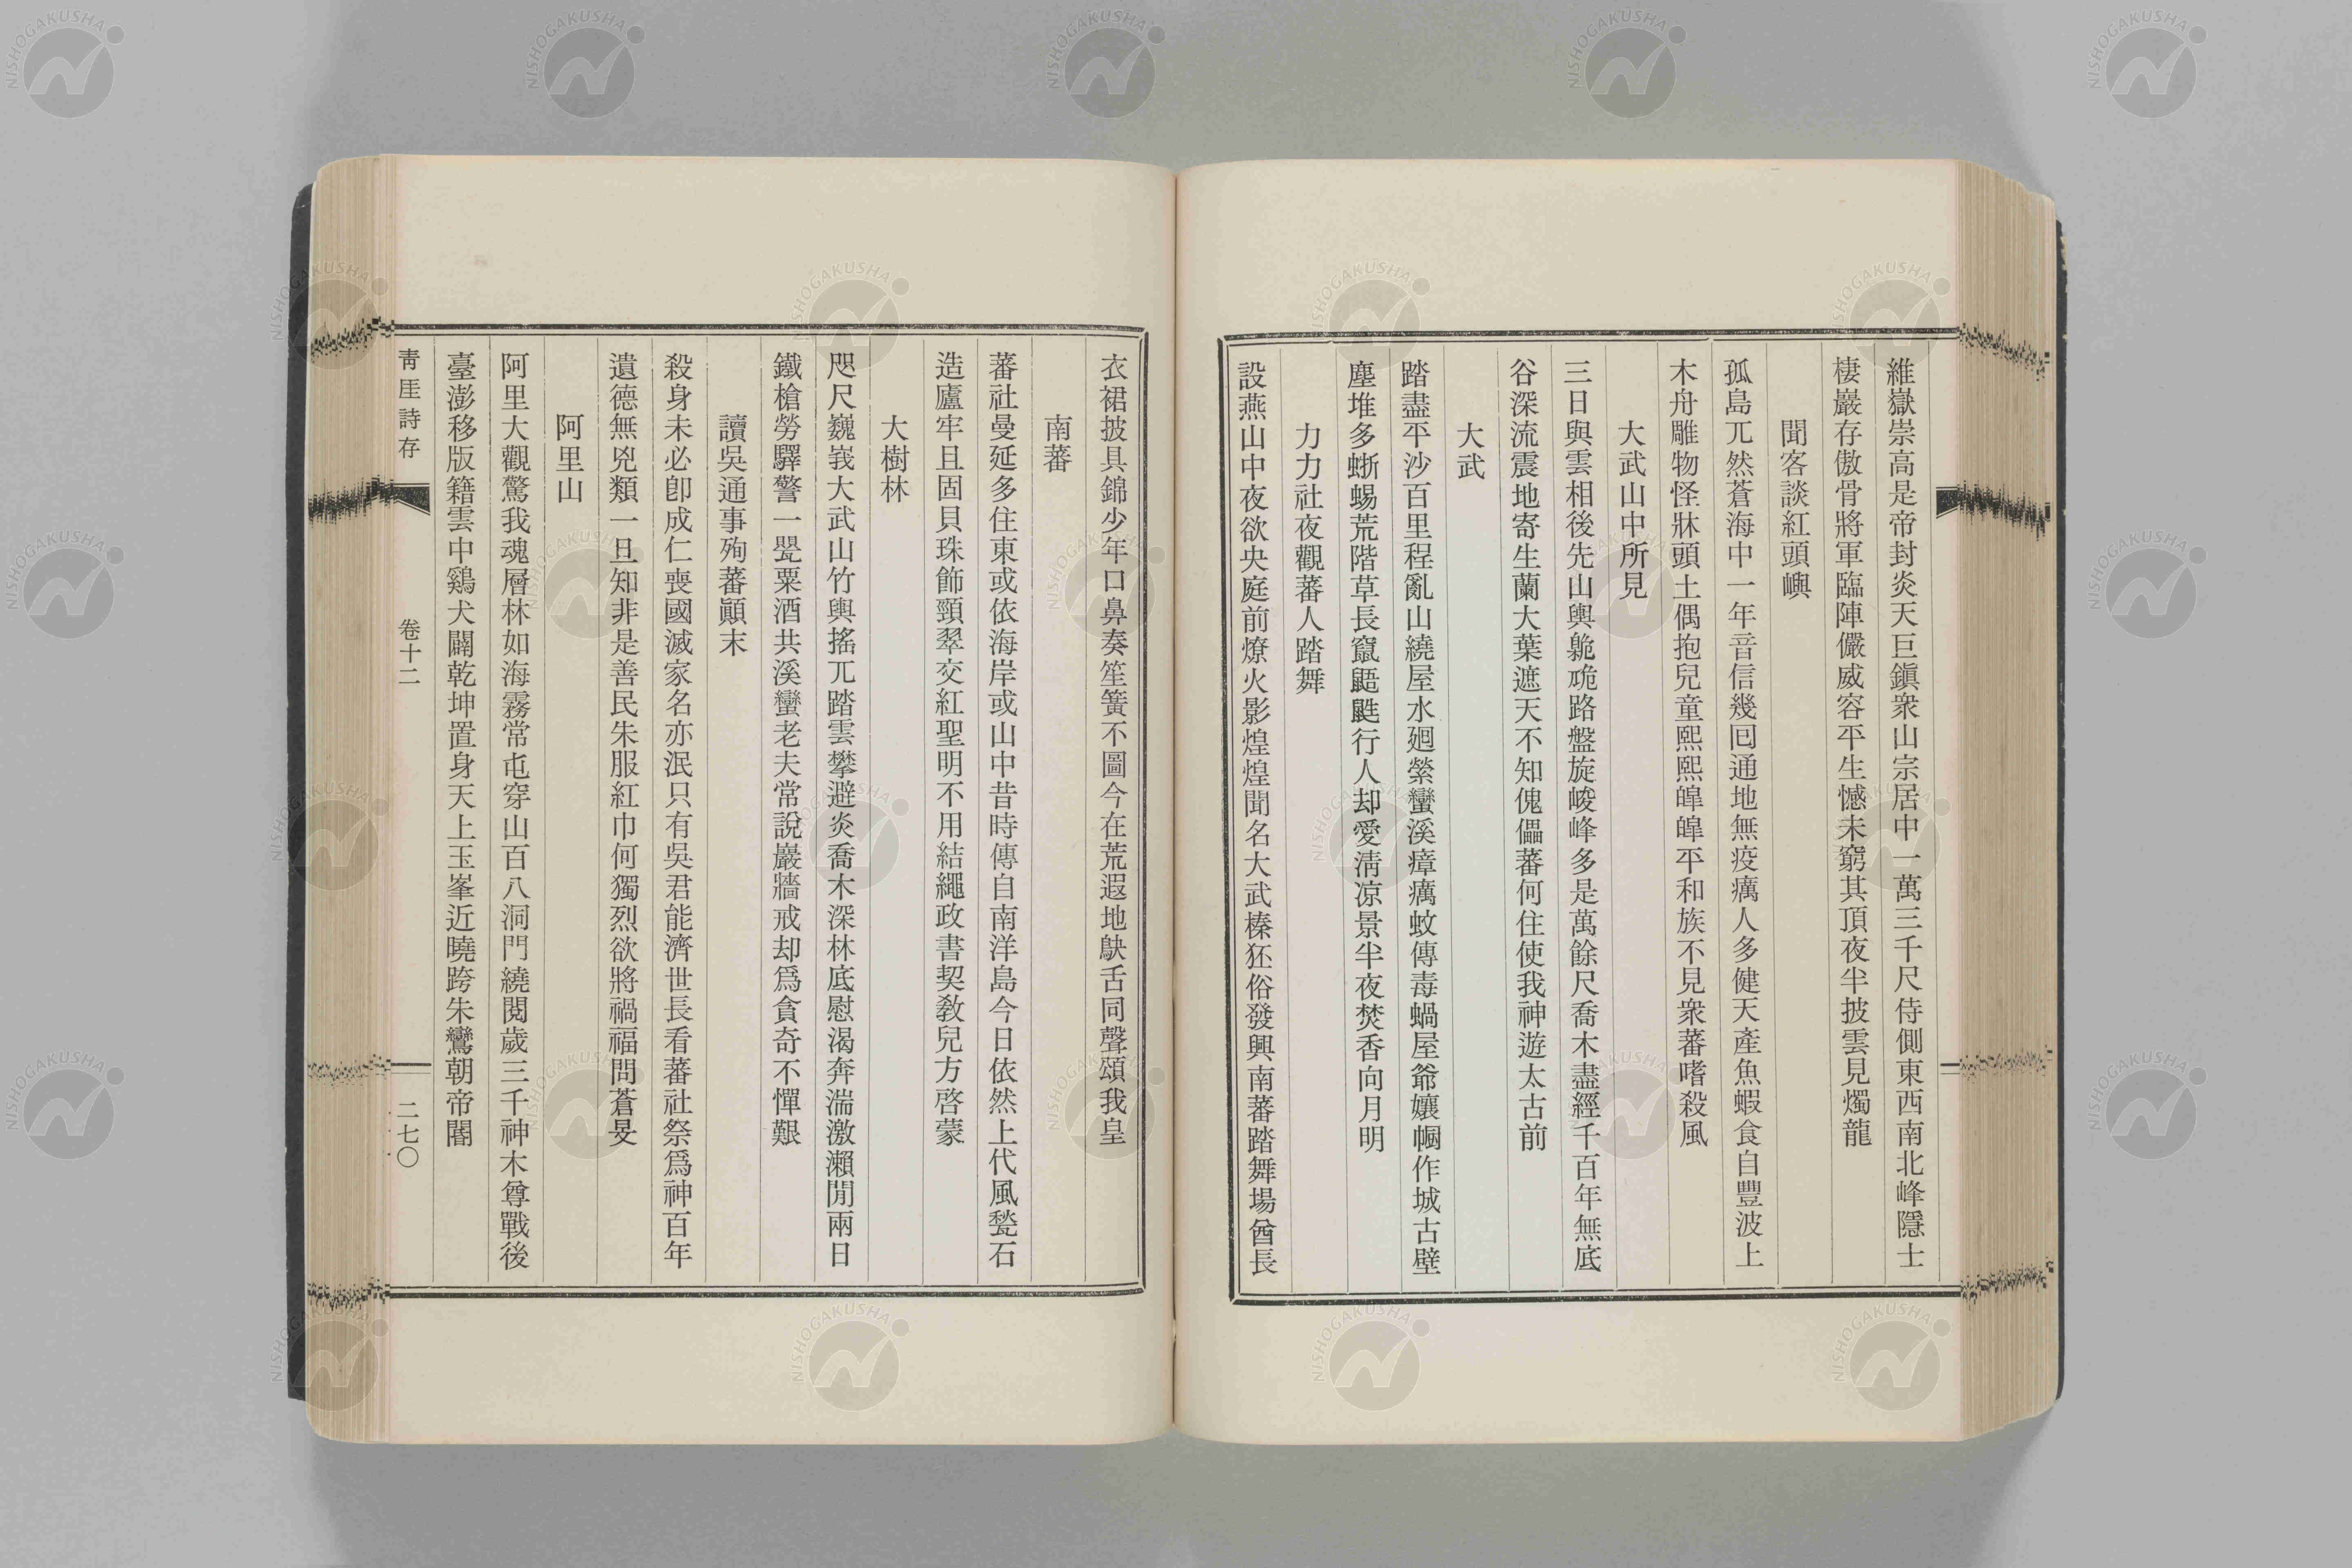 維嶽崇高是帝封炎天巨鎭衆山宗居中一萬三千尺侍側東西南北峰隱士
棲巖存傲骨將軍臨陣儼威容平生憾未窮其頂夜半披雲見燭龍
聞客談紅頭嶼
孤島兀然蒼海中一年音信幾囘通地無疫癘人多健天產魚蝦食自豐波上
木舟雕物怪牀頭土偶抱兒童熙熙皥皥平和族不見衆蕃嗜殺風
大武山中所見
三日與雲相後先山輿臲卼路盤旋峻峰多是萬餘尺喬木盡經千百年無底
谷深流震地寄生蘭大葉遮天不知傀儡蕃何住使我神遊太古前
大武
踏盡平沙百里程亂山繞屋水廻縈蠻溪瘴癘蚊傳毒蝸屋爺孃幗作城古壁
塵堆多蜥蜴荒階草長竄鼯鼪行人却愛淸凉景半夜焚香向月明
力力社夜觀蕃人踏舞
設燕山中夜欲央庭前燎火影煌煌聞名大武榛狉俗發興南蕃踏舞場酋長
衣裙披具錦少年口鼻奏笙簧不圖今在荒遐地鴃舌同聲頌我皇
南蕃
蕃社曼延多住東或依海岸或山中昔時傳自南洋島今日依然上代風甃石
造廬牢且固貝珠飾頸翠交紅聖明不用結繩政書契敎兒方啓蒙
大樹林
咫尺巍峩大武山竹輿搖兀踏雲攀避炎喬木深林底慰渴奔湍激瀨閒兩日
鐵槍勞驛警一甖粟酒共溪蠻老夫常說巖牆戒却爲貪奇不憚艱
讀吳通事殉蕃顚末
殺身未必卽成仁喪國滅家名亦泯只有吳君能濟世長看蕃社祭爲神百年
遺德無兇類一旦知非是善民朱服紅巾何獨烈欲將禍福問蒼旻
阿里山
阿里大觀驚我魂層林如海霧常屯穿山百八洞門繞閱歲三千神木尊戰後
臺澎移版籍雲中鷄犬闢乾坤置身天上玉峯近曉跨朱鸞朝帝閽
靑厓詩存
卷十二
二七〇
NISHOGAKUSHA